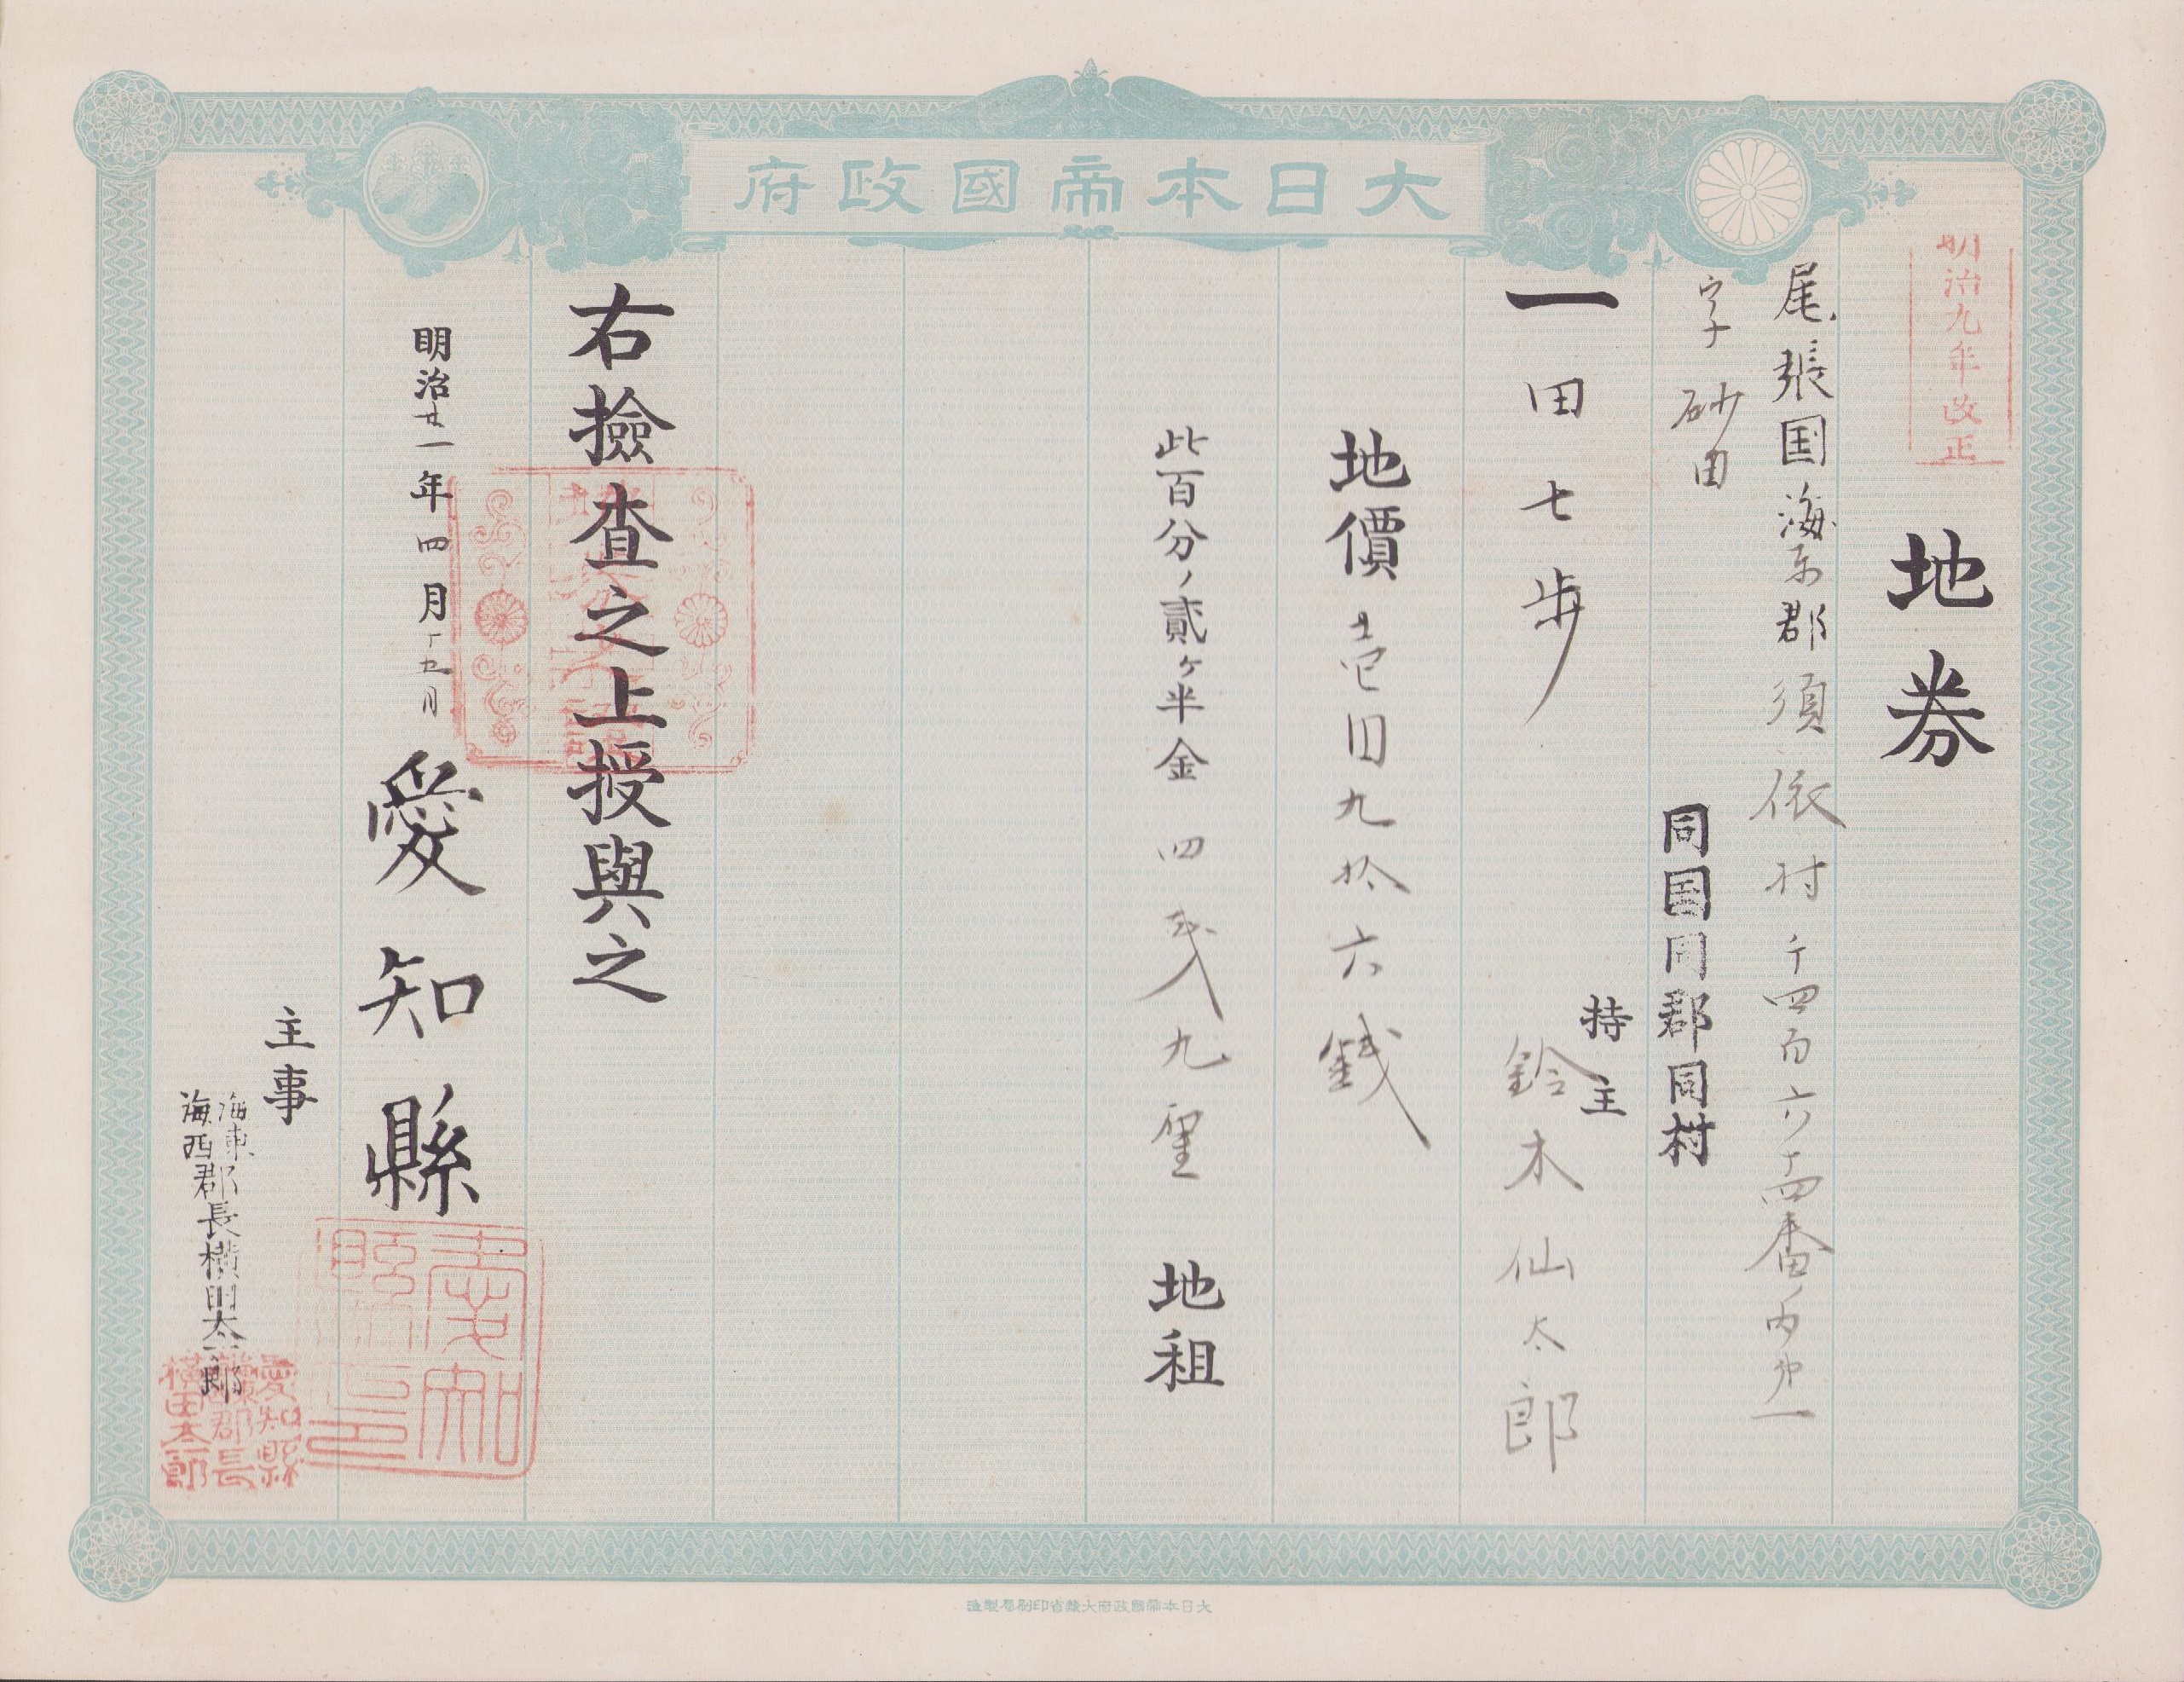 大日本帝國政府
明治九年改正
地券
尾張国海东郡須依村千四百六十四番ノ内第一
字砂田
同国同郡同村
持主
鈴木仙太郎
一田七歩
地價壱円九拾六銭
此百分ノ貳ヶ半金四銭九厘 地租
右撿査之上授與之
明治廿一年四月十九日
愛知縣
主事
海東
海西郡長横田太一郎
愛知縣印
愛知縣
郡長
横田太一郎
大日本帝國政府大蔵省印刷局製造